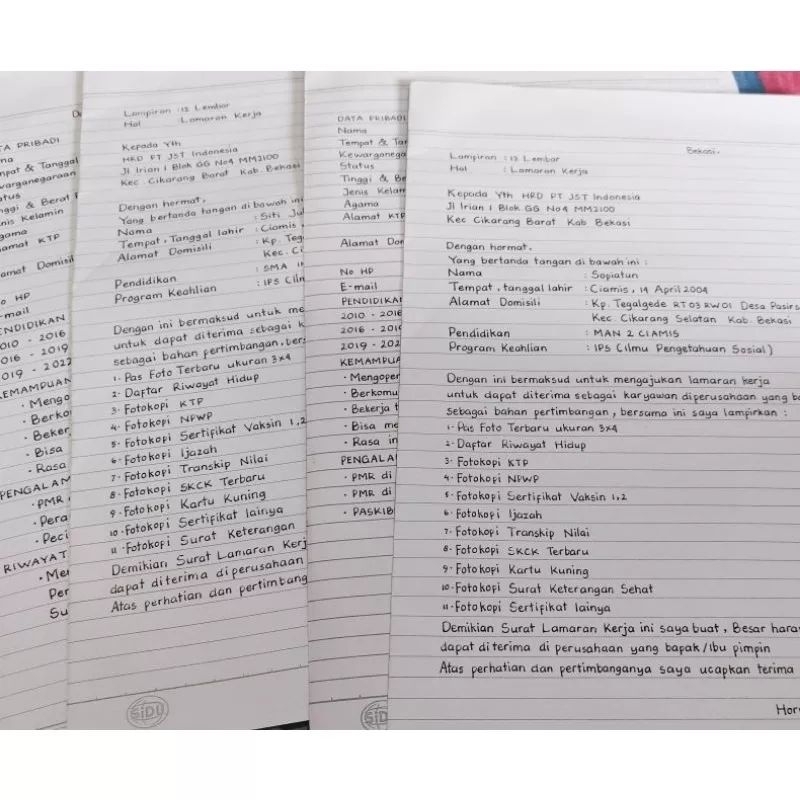 DATA PRIBADI
Tempat & Tanggal
Kewarganegaraan
Status
Tinggi & Berat
Jenis Kelamin
Agama
Alamat KTP
Alamat Domisili
No HP
E-mail
PENDIDIKAN
2010 - 2016
2016 - 2019
2019 - 2022
KEMAMPUAN
• Mengo
• Berko
• Beker
• Bisa
• Rasa
PENGALAM
• PMR
• Pera
• Peci
RIWAYAT
• Me
Per
Su
Lampiran : 12 Lembar
Hal : Lamaran Kerja
Kepada Yth
HRD PT JST Indonesia
Jl Irian 1 Blok GG No4 MM2100
Kec Cikarang Barat Kab. Bekasi
Dengan hormat,
Yang bertanda tangan di bawah ini
Nama : Siti Jul
Tempat, Tanggal lahir : Ciamis,
Alamat Domisili : Kp. Tega
Kec. Ci
Pendidikan : SMA
Program Keahlian : IPS (Ilm
Dengan ini bermaksud untuk me
untuk dapat diterima sebagai k
sebagai bahan pertimbangan, ber
1. Pas Foto Terbaru ukuran 3x4
2. Daftar Riwayat Hidup
3. Fotokopi KTP
4. Fotokopi NPWP
5. Fotokopi Sertifikat Vaksin 1,2
6. Fotokopi Ijazah
7. Fotokopi Transkip Nilai
8. Fotokopi SKCK Terbaru
9. Fotokopi Kartu Kuning
10. Fotokopi Sertifikat lainya
11. Fotokopi Surat Keterangan
Demikian Surat Lamaran Kerj
dapat diterima di perusahaan
Atas perhatian dan pertimbang
SiDU
DATA PRIBADI
Nama
Tempat & Tan
Kewarganega
Status
Tinggi & Be
Jenis Kelam
Agama
Alamat KTP
Alamat Dom
No HP
E-mail
PENDIDIKAN
2010 - 2016
2016 - 2019
2019 - 202
KEMAMPUAN
• Mengoper
• Berkomu
• Bekerja t
• Bisa me
• Rasa in
PENGALA
• PMR di
• PMR di
• PASKIB
SiDU
Bekasi,
Lampiran : 12 Lembar
Hal : Lamaran Kerja
Kepada Yth HRD PT JST Indonesia
Jl Irian 1 Blok GG No4 MM2100
Kec Cikarang Barat Kab Bekasi
Dengan hormat,
Yang bertanda tangan di bawah ini :
Nama : Sopiatun
Tempat, tanggal lahir : Ciamis, 14 April 2004
Alamat Domisili : Kp. Tegalgede RT03 RW01 Desa Pasirs
Kec Cikarang Selatan Kab. Bekasi
Pendidikan : MAN 2 CIAMIS
Program Keahlian : IPS (Ilmu Pengetahuan Sosial)
Dengan ini bermaksud untuk mengajukan lamaran kerja
untuk dapat diterima sebagai karyawan diperusahaan yang ba
sebagai bahan pertimbangan, bersama ini saya lampirkan :
1. Pas Foto Terbaru ukuran 3x4
2. Daftar Riwayat Hidup
3. Fotokopi KTP
4. Fotokopi NPWP
5. Fotokopi Sertifikat Vaksin 1,2
6. Fotokopi Ijazah
7. Fotokopi Transkip Nilai
8. Fotokopi SKCK Terbaru
9. Fotokopi Kartu Kuning
10. Fotokopi Surat Keterangan Sehat
11. Fotokopi Sertifikat lainya
Demikian Surat Lamaran Kerja ini saya buat, Besar hara
dapat diterima di perusahaan yang bapak/Ibu pimpin
Atas perhatian dan pertimbanganya saya ucapkan terima
Hor